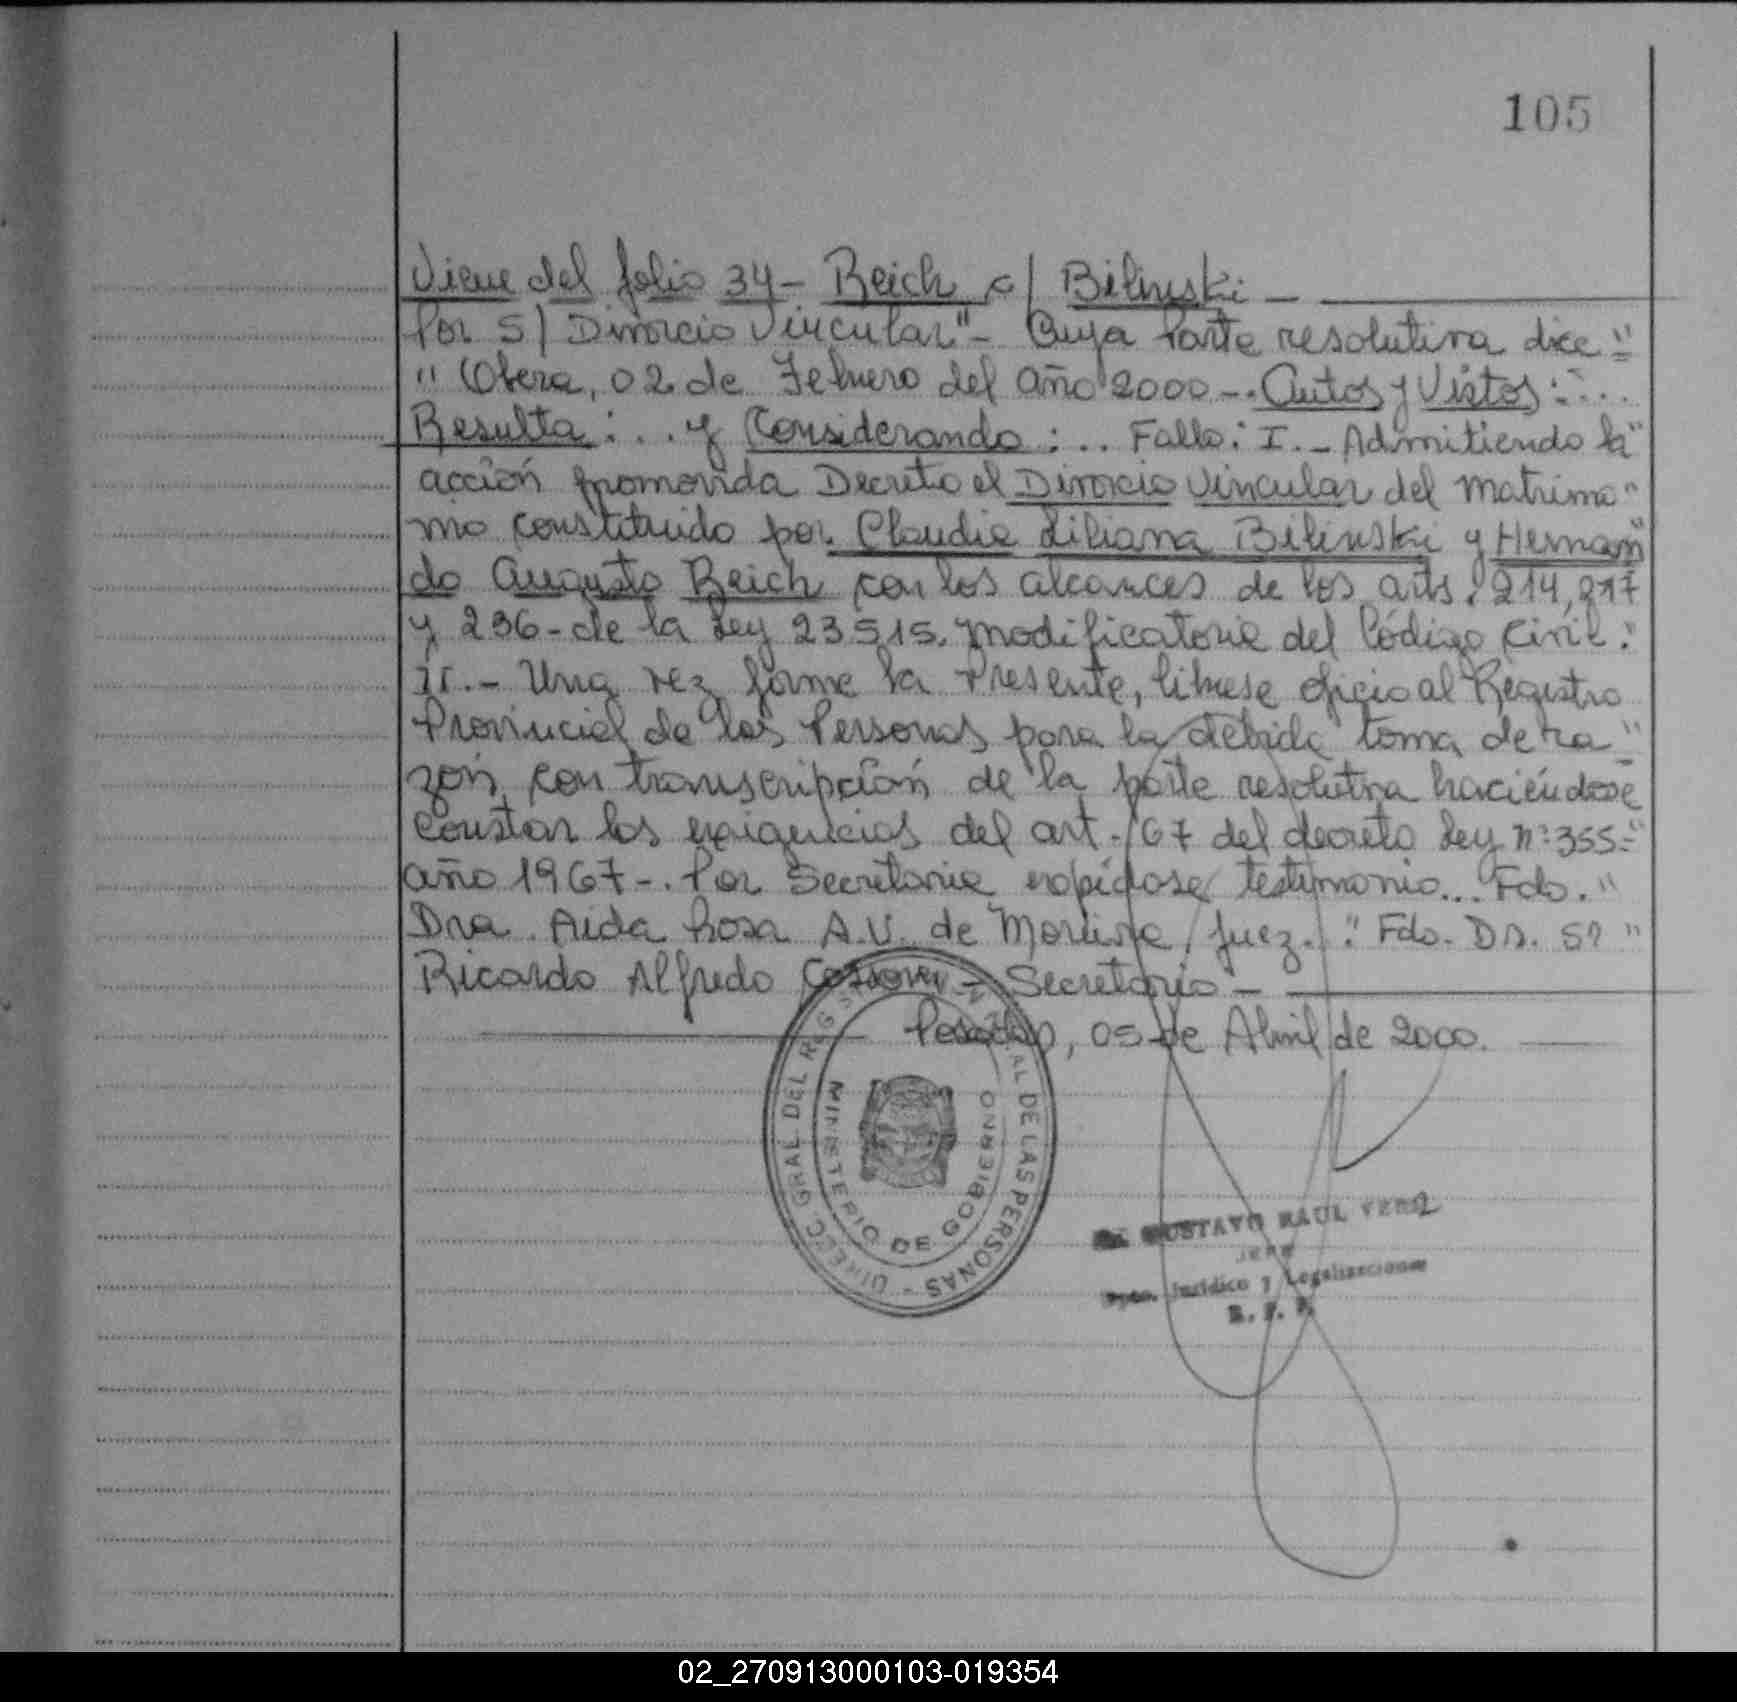 105
Viene del folio 34 - Reich c/ Bilinski -
Por S/ Divorcio Vincular" - Cuya Parte resolutiva dice "
" Obera, 02 de Febrero del año 2000 -. Autos y Vistos : ...
Resulta : .. y Considerando : .. Fallo: I. - Admitiendo la "
acción promovida Decreto el Divorcio Vincular del matrimo "
nio constituido por Claudia Liliana Bilinski y Hernan
do Augusto Reich con los alcances de los arts. 214, 217
y 236 - de la Ley 23515. modificatoria del Código Civil. "
II. - Una vez firme la Presente, librese oficio al Registro
Provincial de las Personas para la debida toma de ra "
zón con transcripción de la parte resolutiva haciéndose
constar los exigencias del art. 67 del decreto Ley nº 355 - "
año 1967 -. Por Secretaria expídase testimonio... Fdo. "
Dra. Aida Rosa A.V. de Moreira, Juez. " Fdo. Dr. "
Ricardo Alfredo - Secretario -
Posadas, 05 de Abril de 2000.
DIRECC. GRAL DEL REGISTRO PROVINCIAL DE LAS PERSONAS -
MINISTERIO DE GOBIERNO
GUSTAVO RAUL
JEFE
Dpto. Jurídico y Legalizaciones
R. P. P.
02_270913000103-019354